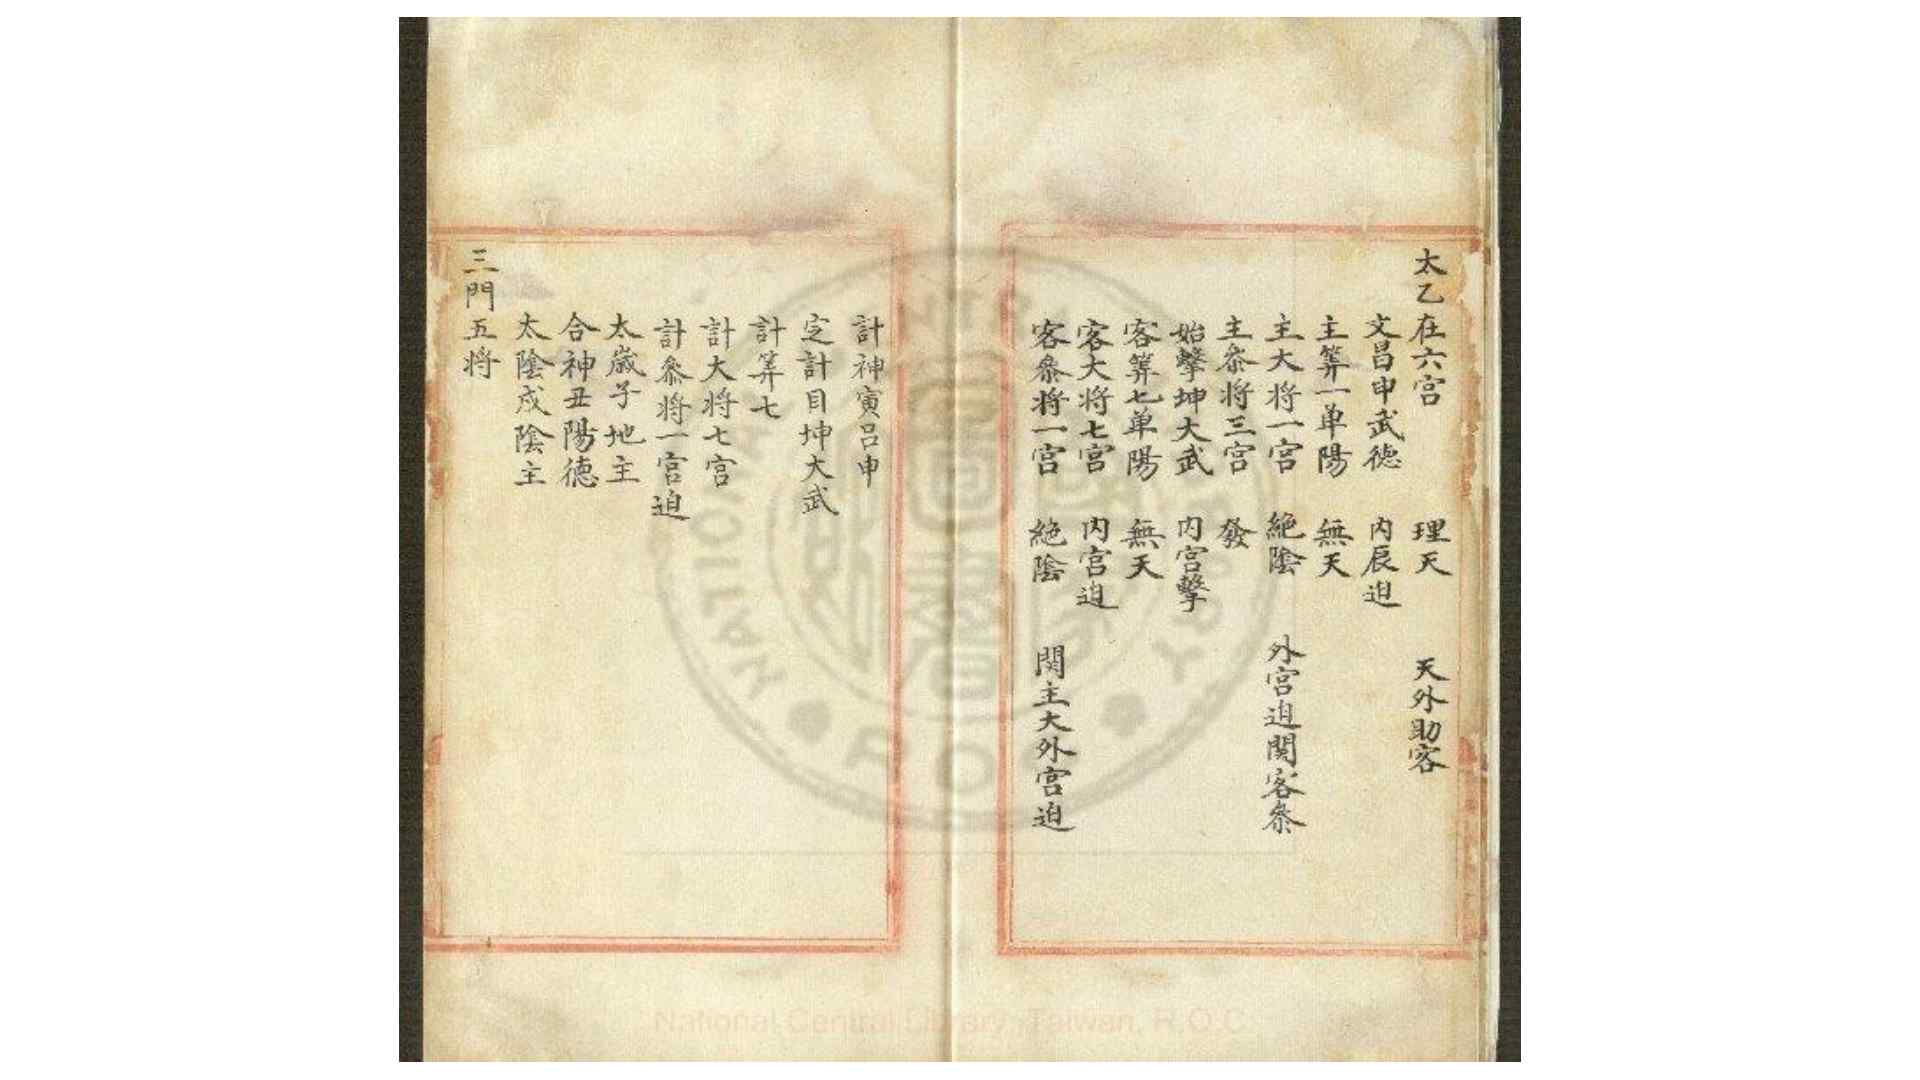 太乙在六宫 理天 天外助客
文昌申武德 内辰迫
主筭一单陽 無天
主大将一宫 絶陰 外宫迫関客叅
主叅将三宫 發
始擊坤大武 内宫擊
客筭七单陽 無天
客大将七宫 内宫迫
客叅将一宫 絶陰 関主大外宫迫
計神寅吕申
定計目坤大武
計筭七
計大将七宫
計叅将一宫迫
太歲子地主
合神丑陽德
太陰戌陰主
三門五将
NATIONAL
R.O.C.
National Central Library, Taiwan, R.O.C.